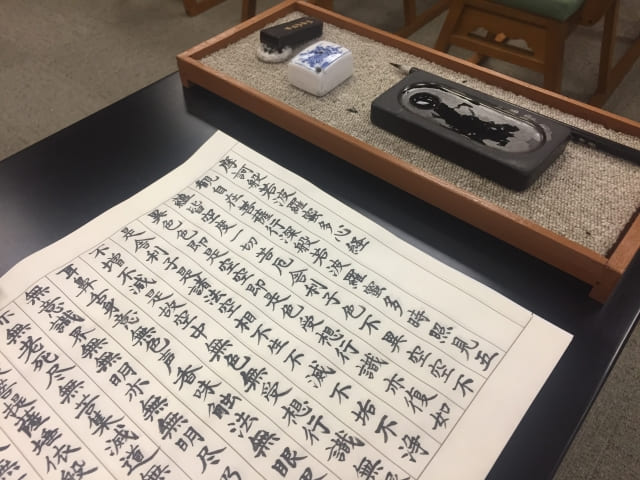 摩訶般若波羅蜜多心経
観自在菩薩行深般若波羅蜜多時照見五
蘊皆空度一切苦厄舎利子色不異空空不
異色色即是空空即是色受想行識亦復如
是舎利子是諸法空相不生不滅不垢不浄
不増不減是故空中無色無受想行識無眼
耳鼻舌身意無色声香味触法無眼
無意識界無無明亦無無明尽乃
無老死尽無苦集滅道無
菩提薩埵依般